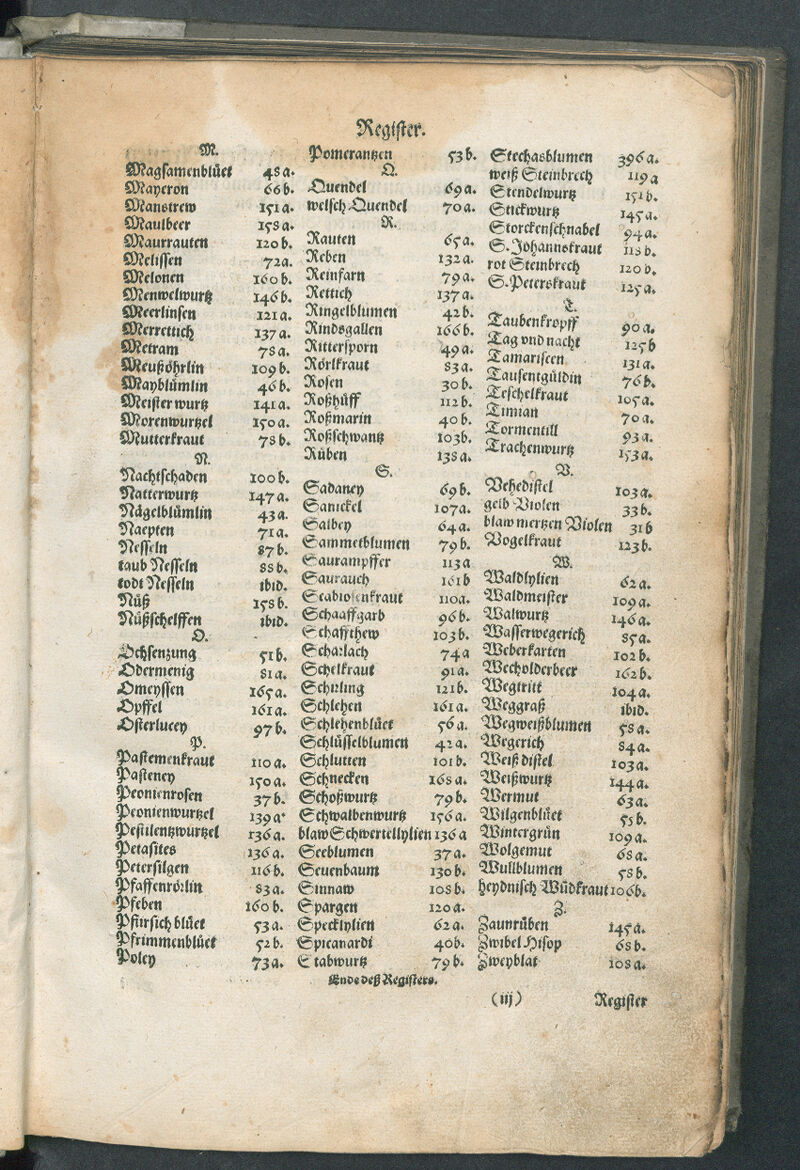 Register.
M.
Magsamenblüet 48a.
Mayeron 66b.
Manstrew 151a.
Maulbeer 158a.
Maurrauten 120b.
Melissen 72a.
Melonen 160b.
Menwelwurtz 146b.
Meerlinsen 121a.
Merrettich 137a.
Metram 78a.
Meußöhrlin 109b.
Mayblümlin 46b.
Meisterwurtz 141a.
Morenwurtzel 150a.
Mutterkraut 78b.
N.
Nachtschaden 100b.
Natterwurtz 147a.
Nägelblümlin 43a.
Naepten 71a.
Nesseln 87b.
taub Nesseln 88b.
todt Nesseln ibid.
Nüß 158b.
Nüßschelffen ibid.
O.
Ochsenzung 51b.
Odermenig 81a.
Omeyssen 165a.
Opffel 161a.
Osterlucey 97b.
P.
Pastemenkraut 110a.
Pasteney 150a.
Peonienrosen 37b.
Peonienwurtzel 139a.
Pestilentzwurtzel 136a.
Petasites 136a.
Petersilgen 116b.
Pfaffenrörlin 83a.
Pfeben 160b.
Pfirsichblüet 53a.
Pfrimmenblüet 52b.
Poley 73a.
Pomerantzen 53b.
Q.
Quendel 69a.
welsch Quendel 70a.
R.
Rauten 65a.
Reben 132a.
Reinfarn 79a.
Rettich 137a.
Ringelblumen 42b.
Rindsgallen 166b.
Rittersporn 49a.
Rörlkraut 83a.
Rosen 30b.
Roßhüff 112b.
Roßmarin 40b.
Roßschwantz 103b.
Rüben 138a.
S.
Sadaney 69b.
Sanickel 107a.
Salbey 64a.
Sammetblumen 79b.
Saurampffer 113a
Saurauch 161b
Scabiosenkraut 110a.
Schaaffgarb 96b.
Schaffthew 103b.
Scharlach 74a
Schelkraut 91a.
Schirling 121b.
Schlehen 161a.
Schlehenblüet 56a.
Schlüsselblumen 42a.
Schlutten 101b.
Schnecken 168a.
Schoßwurtz 79b.
Schwalbenwurtz 156a.
blaw Schwertellylien 136a
Seeblumen 37a.
Seuenbaum 130b.
Sinnaw 108b.
Spargen 120a.
Specklylien 62a.
Spicanardi 40b.
Stabwurtz 79b.
Stechasblumen 396a.
weiß Steinbrech 119a
Stendelwurtz 151b.
Stickwurtz 145a.
Storckenschnabel 94a.
S. Johannskraut 118b.
rot Steinbrech 120b.
S. Peterskraut 125a.
T.
Taubenkropff 90a.
Tag vnd nacht 125b
Tamariscen 131a.
Tausentgüldin 76b.
Teschelkraut 105a.
Timian 70a.
Tormentill 93a.
Trachenwurtz 153a.
V.
Vehedistel 103a.
gelb Violen 33b.
blaw mertzen Violen 31b
Vogelkraut 123b.
W.
Waldlylien 62a.
Waldmeister 109a.
Walwurtz 146a.
Wasserwegerich 85a.
Weberkarten 102b.
Wecholderbeer 162b.
Wegtritt 104a.
Weggraß ibid.
Wegweißblumen 58a.
Wegerich 84a.
Weiß distel 103a.
Weißwurtz 144a.
Wermut 63a.
Wilgenblüet 55b.
Wintergrün 109a.
Wolgemut 68a.
Wullblumen 58b.
heydnisch Wüdkraut 106b.
Z.
Zaunrüben 145a.
Zwibel Hisop 68b.
Zweyblat 108a.
Ende deß Registers.
(iij) Register